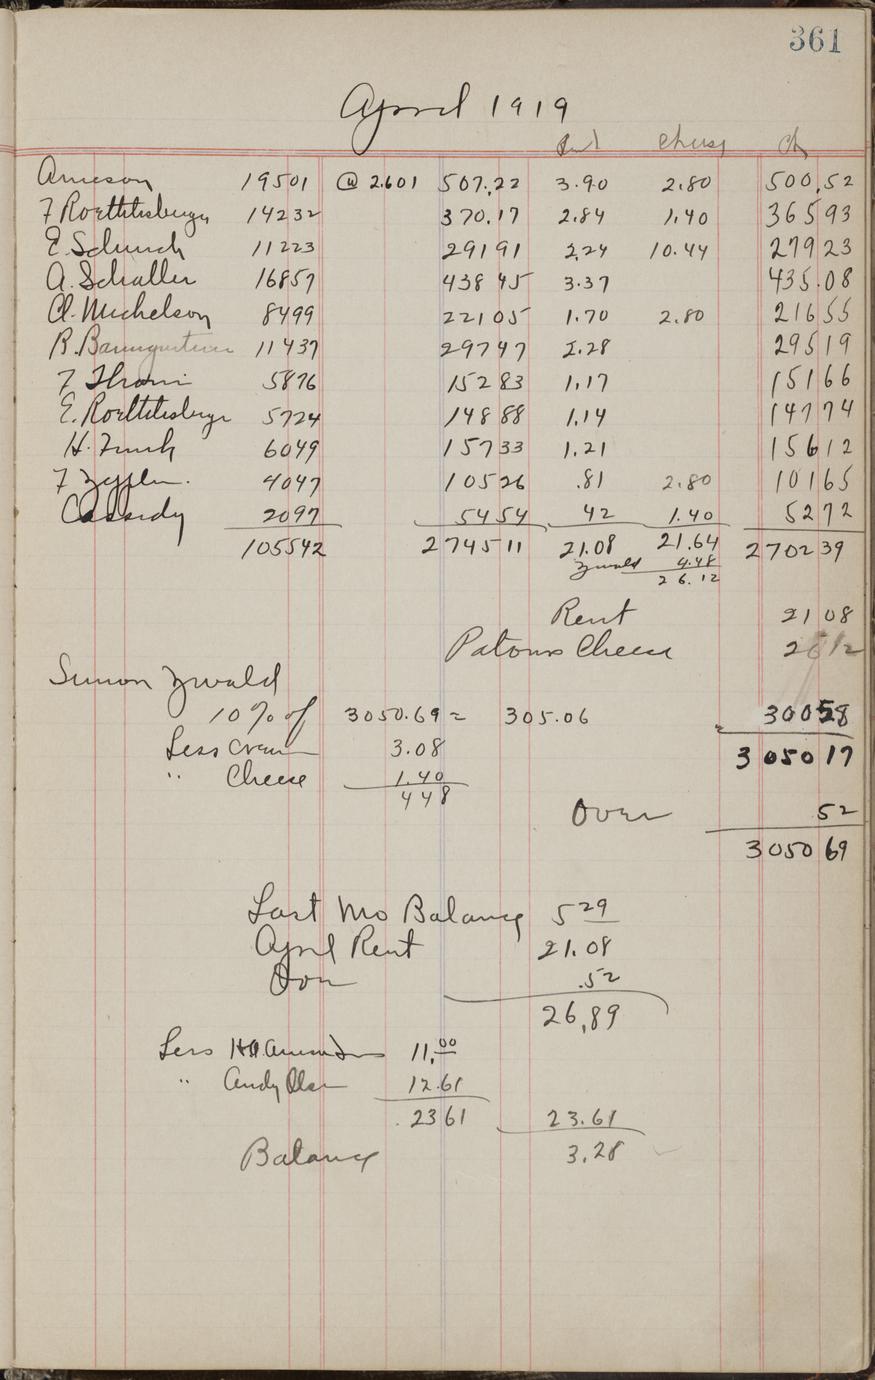 361
April 1919
Rent Cheese Ck
Arneson 19501 @ 2.601 507.22 3.90 2.80 500.52
F Roethlisberger 14232 370.17 2.84 1.40 365 93
E. Schunck 11223 291 91 2.24 10.44 279 23
A. Schaller 16857 438 45 3.37 435.08
Cl. Michelson 8499 221 05 1.70 2.80 216 55
R. Baumgartner 11437 297 47 2.28 295 19
F Thoni 5876 152 83 1.17 151 66
E. Roethlisberger 5724 148 88 1.14 147 74
H. Funk 6049 157 33 1.21 156 12
F 4047 105 26 .81 2.80 101 65
Cassidy 2097 54 54 42 1.40 52 72
105542 2745 11 21.08 21.64 2702 39
Zwald 4.48
26.12
Rent 21 08
Patrons Cheese 26 12
Simon Zwald
10% of 3050.69 = 305.06 300 58
Less Cream 3.08 3 050 17
" Cheese 1.40
4 48
Over .52
3 050 69
Last Mo Balance 5 29
April Rent 21.08
Over .52
26,89
Less 11,00
" Andy Olson 12.61
23 61 23.61
Balance 3.28